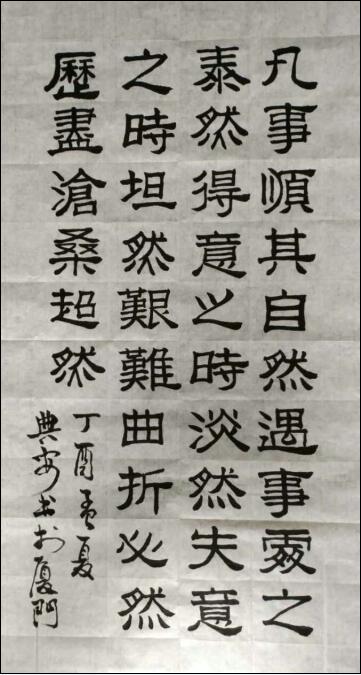 凡事順其自然遇事處之
泰然得意之時淡然失意
之時坦然艱難曲折必然
歷盡滄桑超然
丁酉孟夏
典安书於厦門